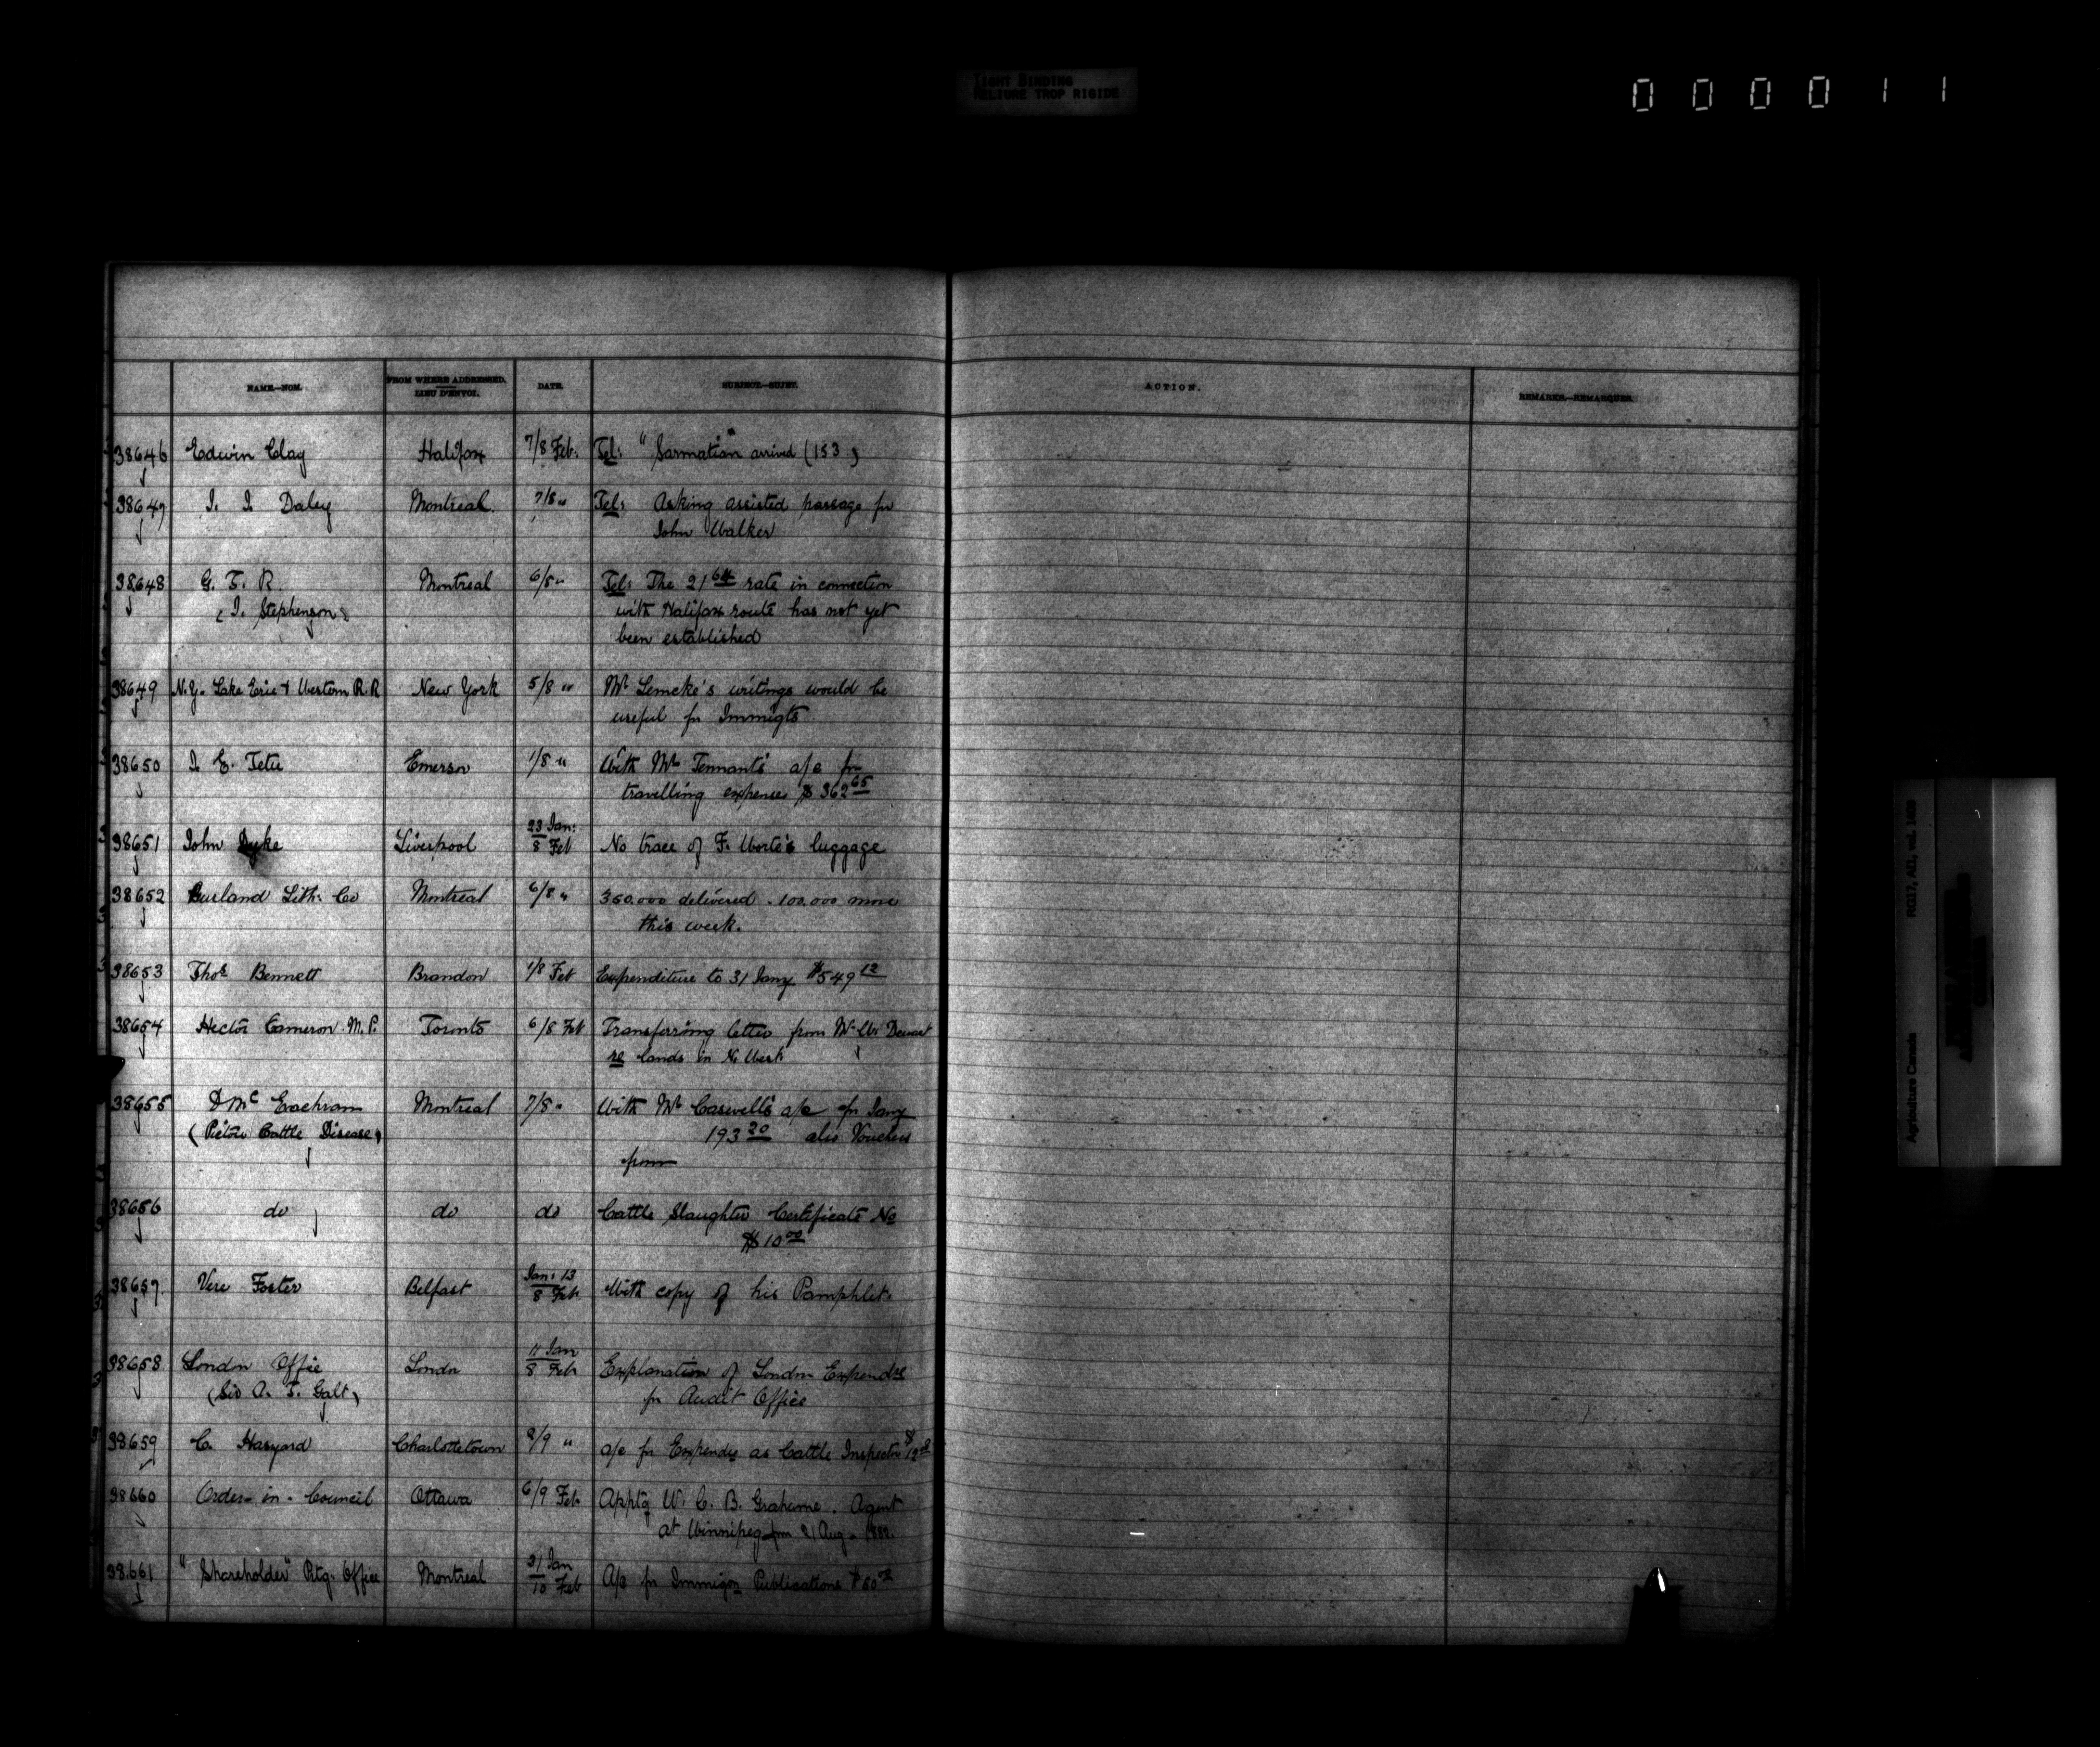 TIGHT BINDING
RELIURE TROP RIGIDE
0 0 0 0 1 1
NAME.—NOM.
FROM WHERE ADDRESSED.
LIEU D'ENVOI.
DATE.
SUBJECT.—SUJET.
ACTION.
REMARKS.—REMARQUES.
38646 Edwin Clay Halifax 7/8 Feb. Tel: "Sarmatian" arrived (153)
38647 J. J. Daley Montreal 7/8 " Tel: Asking assisted passage for
John Walker
38648 G. T. R Montreal 6/8 " Tel: The 21 rate in connection
(J. Stephenson) with Halifax route has not yet
been established
38649 N.Y. Lake Erie & Western R.R New York 5/8 " Mr Lemcke's writings would be
useful for Immigts
38650 J. E. Tetu Emerson 1/8 " With Mr Tennant's a/c for
travelling expenses $362 65
23 Jan:
38651 John Dyke Liverpool 8 Feb No trace of F. luggage
38652 Burland Lith: Co Montreal 6/8 " 350.000 delivered . 100.000 more
this week.
38653 Thos Bennett Brandon 1/8 Feb Expenditure to 31 Jany $549 12
38654 Hector Cameron M.P. Toronto 6/8 Feb Transferring letter from Mr
re lands in N. West
38655 D Mc Eachran Montreal 7/8 " With Mr Caswell's a/c for Jany
(Pictou Cattle Disease) 193 20 also Vouchers
from
38656 do do do Cattle Slaughter Certificate No
$10 00
Jan: 13
38657 Vere Foster Belfast 8 Feb With copy of his Pamphlet.
11 Jan
38658 London Office London 8 Feb Explanation of London Expendre
(Sir A. T. Galt) for Audit Office
38659 C. Haszard Charlottetown 2/9 " a/c for Expendre as Cattle Inspector
38660 Order-in-Council Ottawa 6/9 Feb Apptg W. C. B. Grahame. Agent
at Winnipeg from 21 Aug. 1882.
31 Jan
38661 "Shareholder" Ptg. Office Montreal 10 Feb A/c for Immigon Publications $60 00
Agriculture Canada RG17, AII, vol. 1493